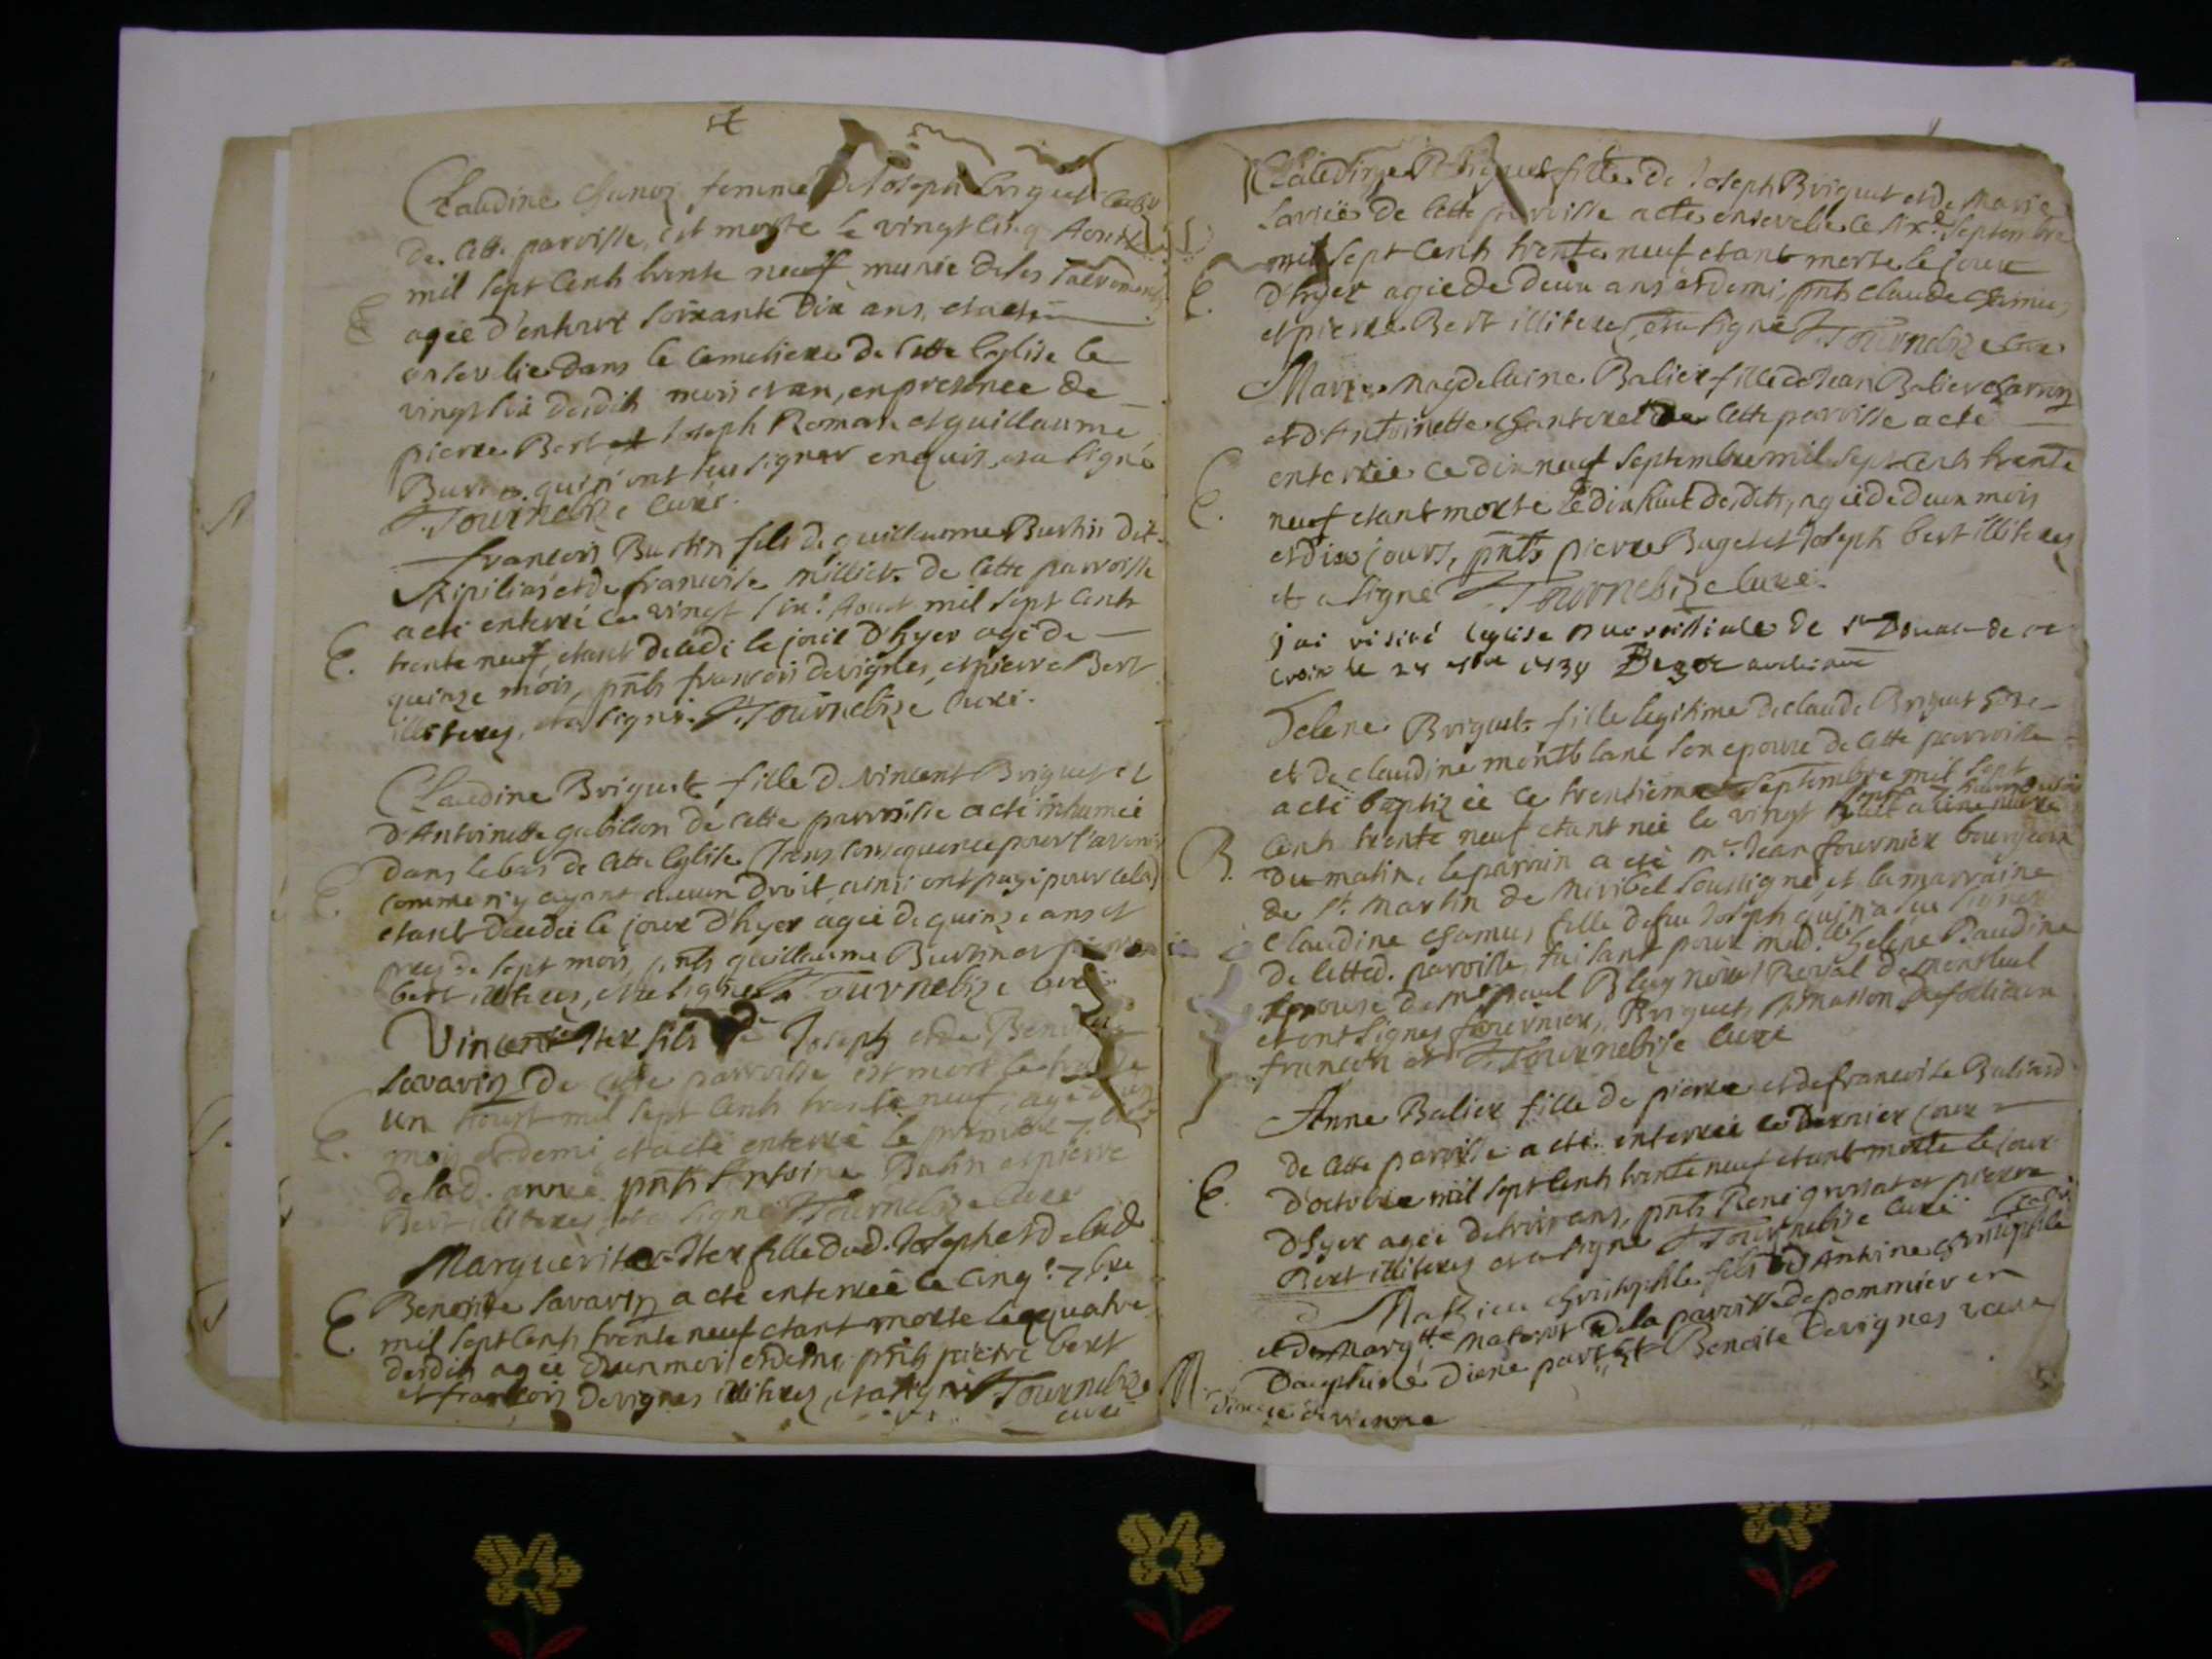 Claudine Chanoz femme De Joseph briquet
de Cette parroisse, est morte le vingt cinq Aoust
mil sept Cents trente neuf munie de ses Sacrements
agée d'enhuit soixante Dix ans, et a eté
ensevelie dans le Cemetiere de Cette Eglise le
vingt six desdits mois et an, en presence de
pierre Bert et Joseph Roman et guillaume
Burtin qui n'ont sceu signer enquis, et a signé
Tournebize Curé.
francois Burtin fils de guillaume Burtin dit
et de francoise milliet de Cette parroisse
a eté enterré le vingt six.e Aoust mil sept Cents
E. trente neuf, etant decedé le jour d'hyer agé de
quinze mois, pnts francois devignes, et pierre Bert
illiterez, et a signé. Tournebize Curé.
Claudine Briquet fille de vincent Briquet et
d'Antoinette gabillon de Cette parroisse a eté inhumée
dans le bas de Cette Eglise (sans consequence pour l'avenir
E. comme n'y ayant aucun Droit ainsi ont payé pour cela)
etant decedée le jour d'hyer agée de quinze ans et
prez de sept mois, pnts guillaume Burtin et pierre
bert illiterez, et a signé Tournebize Curé
Vincent Iter fils de Joseph et de Benoite
Savarin De Cette parroisse est mort le trente
un Aoust mil sept Cents trente neuf, agé d'un
E. mois et demi et a eté enterré le premier 7bre
de lad. année pnts Antoine Butin et pierre
Bert illiterez, et a signé Tournebize Curé
Marguerite Iter fille dud. Joseph et de lad
E. Benoite Savarin a eté enterrée le cinq.e 7bre
mil sept Cents trente neuf etant morte le quatre
desdits agée d'un mois et demi, pnts pierre bert
et francois Devignes illiterez, et a signé Tournebize
curé
Claudine Briquet fille de Joseph Briquet et de Marie
Laviie De Cette parroisse a eté ensevelie le six.e Septembre
mil sept Cents trente neuf etant morte le jour
E. d'hyer agée de deux ans et demi, pnts Claude Chamus
et pierre Bert illiterez, et a signé Tournebize Curé
Marie Magdelaine Balier fille de Jean Balier Charron
et d'Antoinette Chanteret de Cette parroisse a eté
enterrée le dix neuf Septembre mil sept Cents trente
E. neuf etant morte le dix huit desdits, agée de deux mois
et dix jours, pnts pierre Buget et Joseph bert illiterez
et a signé Tournebize Curé.
j'ai visité l'eglise parroissiale de
Croix le
Helene Briquet fille legitime de claude Briquet
et de claudine montblanc son epouse de Cette parroisse
a eté baptizée le trentieme Septembre mil sept
Cents trente neuf etant née le vingt huit a une heure
B. du matin, le parrain a eté mr. Jean fournier bourgeois
de St. Martin de Miribel soussigné et la marraine
Claudine Chamus fille de feu Joseph qui n'a sceu signer
de Cetted. parroisse, faisant pour mad.lle helene Baudine
epouse de mr paul Blaynoir de montluel
et ont signez fournier, Briquet,
francois et Tournebize Curé
Anne Balier fille de pierre et de francoise Baliard
de Cette parroisse a eté enterrée le dernier jour
E. d'octobre mil sept Cents trente neuf etant morte le jour
d'hyer agée de trois ans, pnts René grossat et pierre
Bert illiterez et a signé Tournebize Curé
Mathieu christophle fils d'Antoine christophle
et de Margtte Matenot de la parroisse de pommier en
M. Dauphiné D'une part, Et Benoite Devignes veuve
diocese de vienne